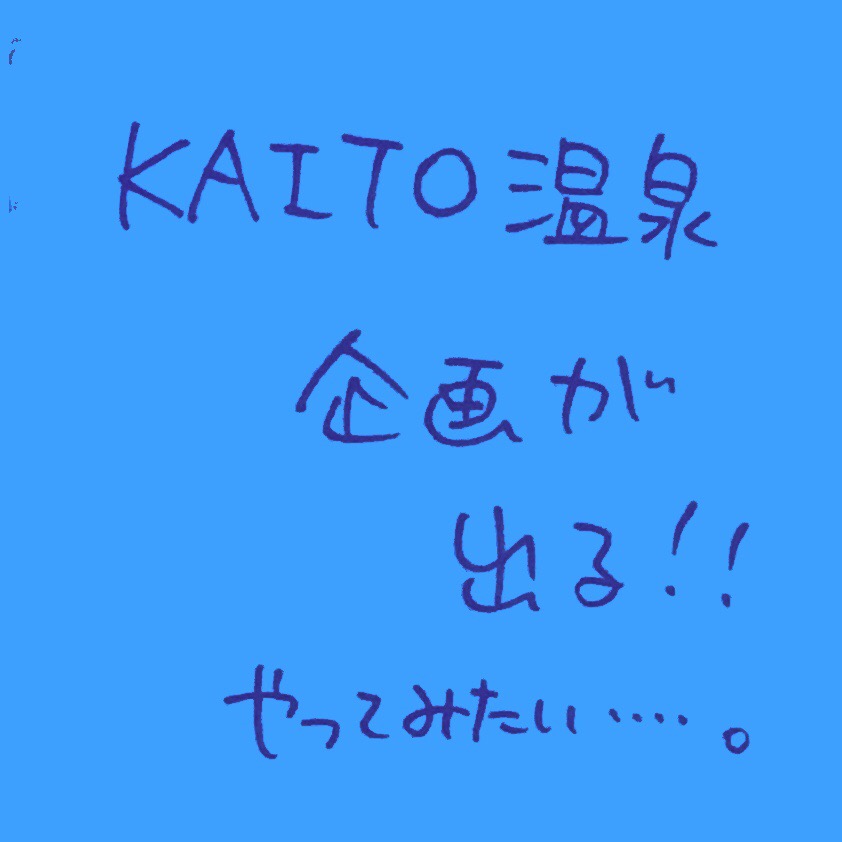 KAITO温泉
企画が
出る!!
やってみたい‥‥。